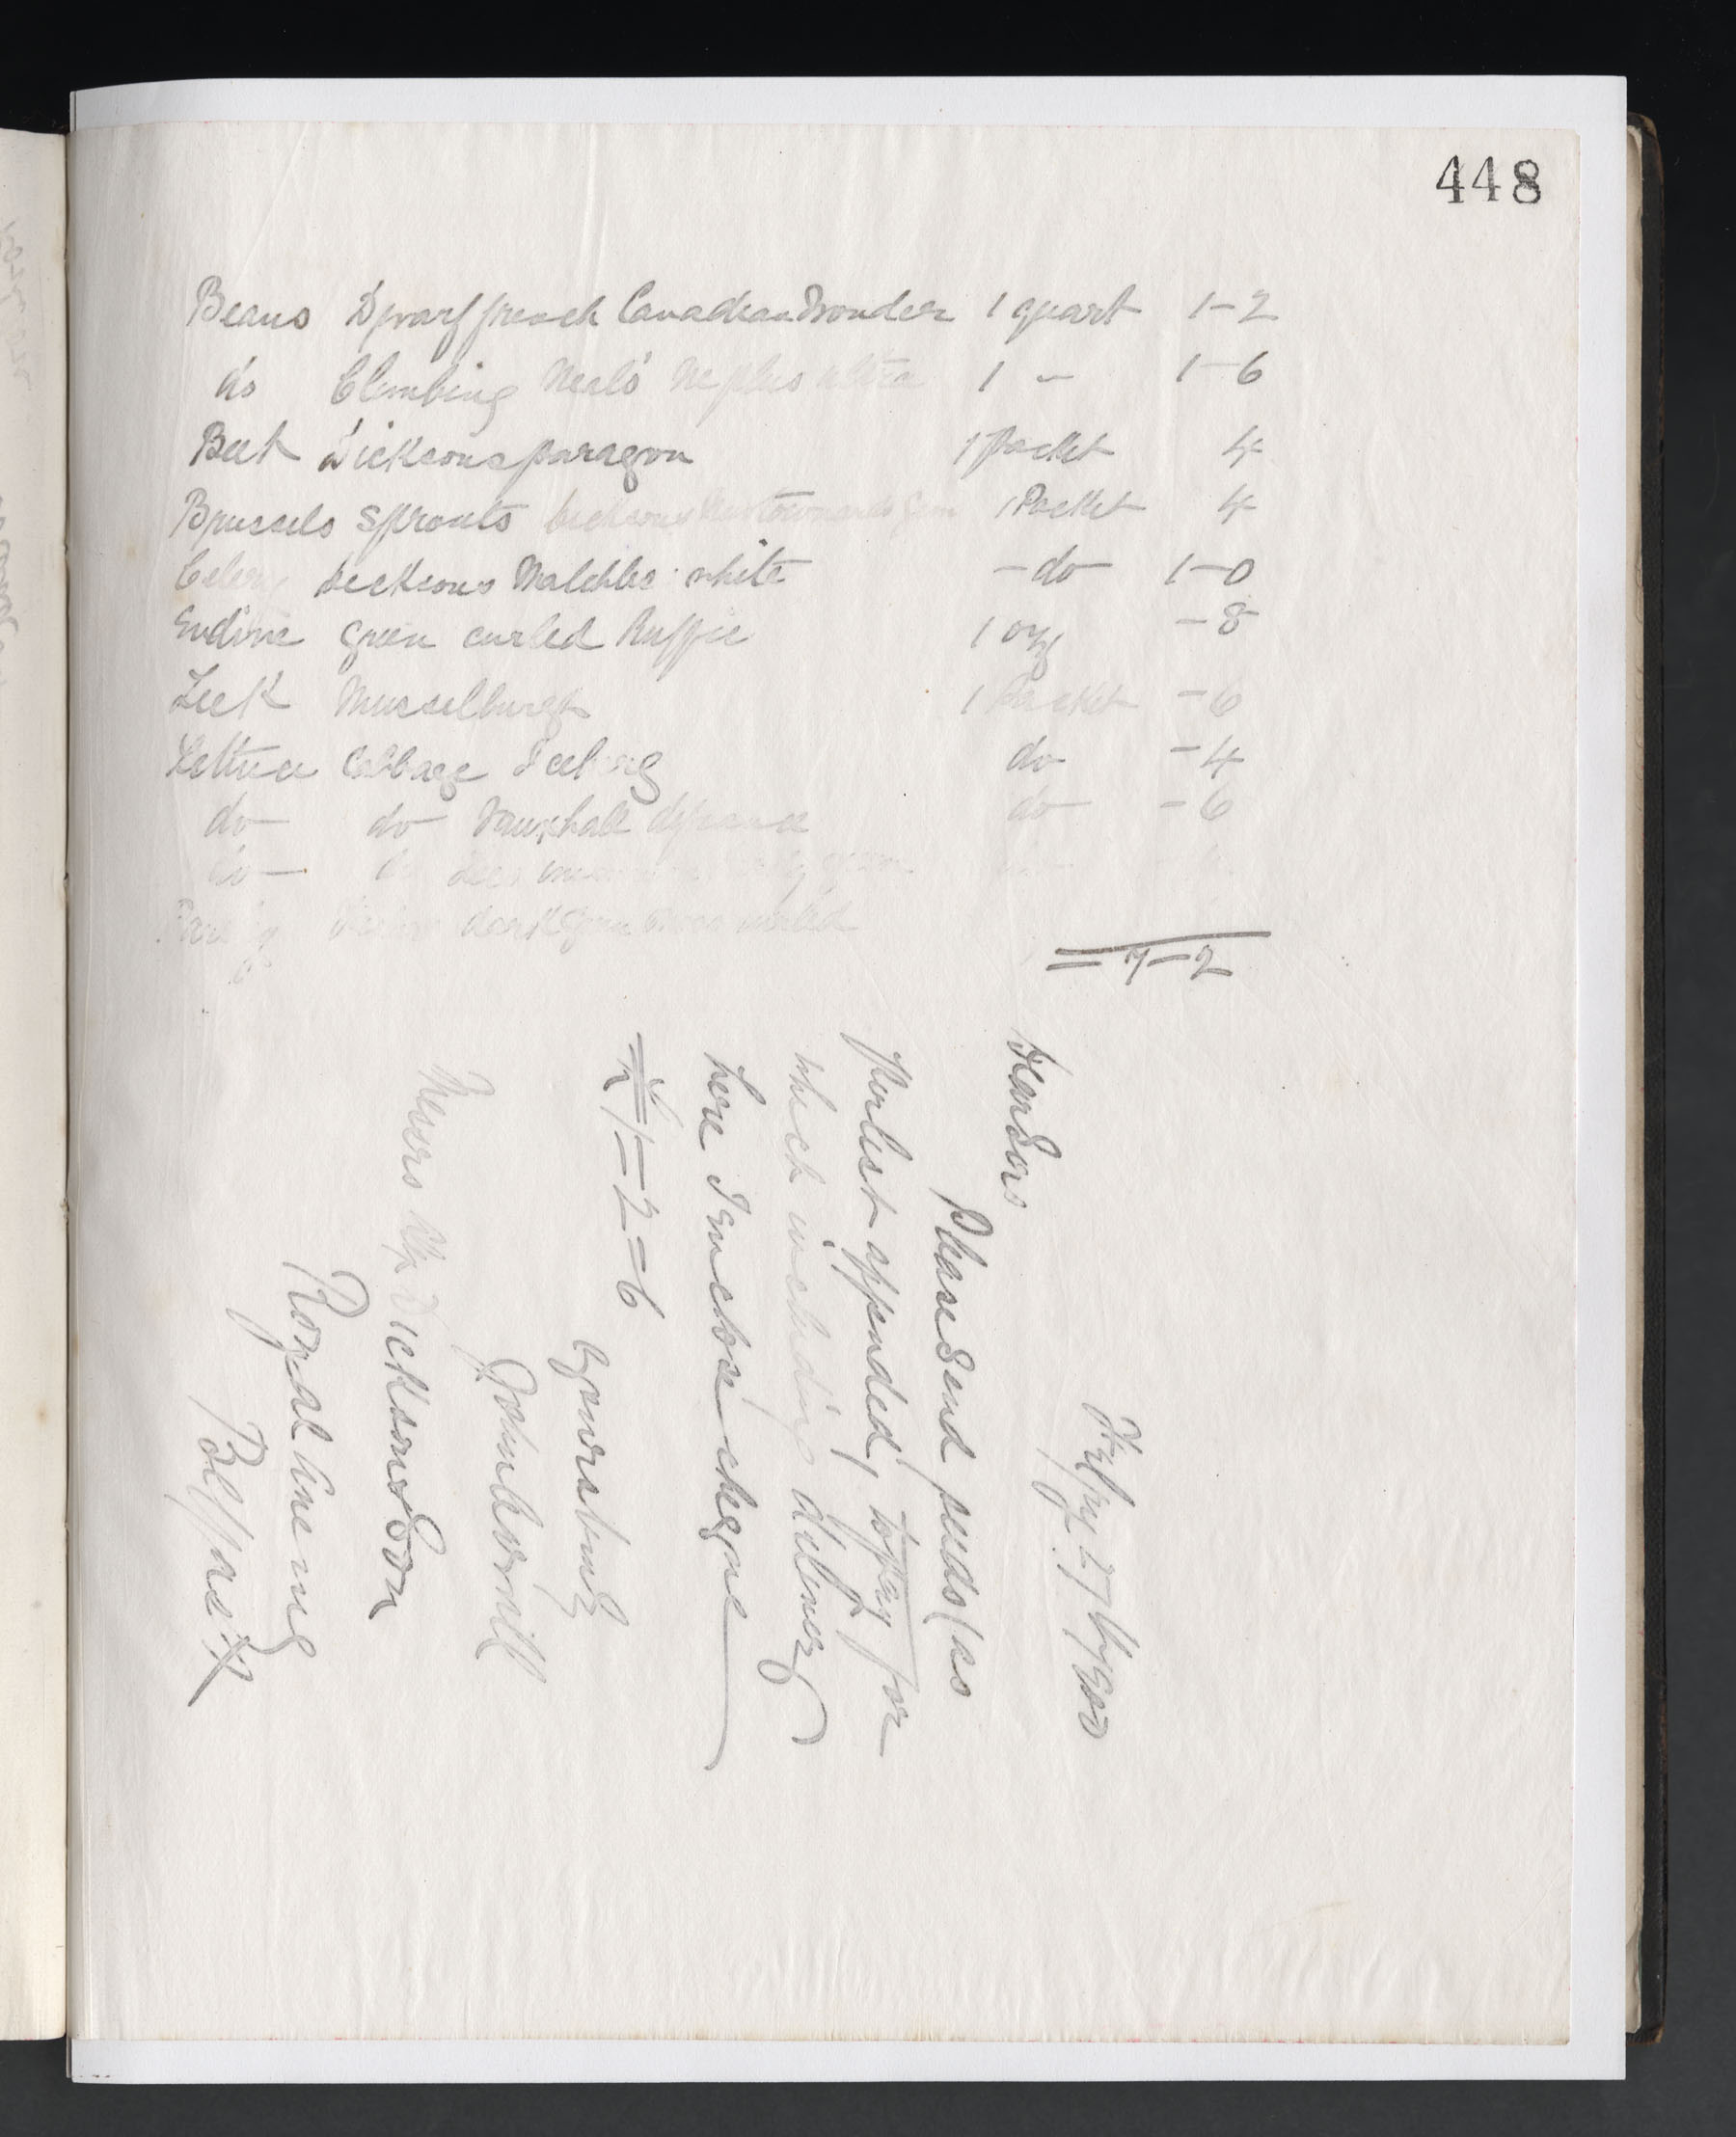 448
Beans Dwarf french Canadian Wonder 1 quart 1-2
do Climbing Neals Ne plus ultra 1 - 1-6
Beet Dicksons paragon 1 Packet 4
Brussels sprouts Dicksons 1 Packet 4
Celery Dicksons Matchless white - do 1-0
Endive green curled Ruffee 1 oz -8
Leek Musselburgh 1 Packet -6
Lettuce Cabbage Iceberg do -4
do do Vauxhall defiance do -6
do
dark green curled
= 7-2
27 1900
Dear Sirs
Please Send seeds (as
per list appended, to pay for
which including delivery
here I enclose cheque
1=2=6
Yours truly
John Cornill
Messrs Dickson & Son
Royal Avenue
Belfast